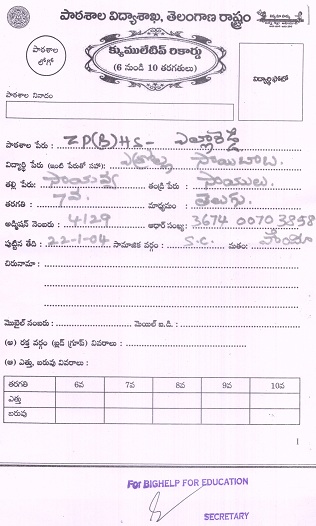 పాఠశాల విద్యాశాఖ, తెలంగాణ రాష్ట్రం
పాఠశాల
లోగో
క్యుములేటివ్ రికార్డు
(6 నుండి 10 తరగతులు)
విద్యార్థి ఫోటో
పాఠశాల నినాదం
పాఠశాల పేరు : ZP(B)HS-
విద్యార్థి పేరు (ఇంటి పేరుతో సహా): సాయిబాబ.
తల్లి పేరు: సాయవ్వ తండ్రి పేరు : సాయిలు.
తరగతి : 7వ. మాధ్యమం : తెలుగు.
అడ్మిషన్ నెంబరు : 4129 ఆధార్ సంఖ్య: 3674 0070 3858
పుట్టిన తేది : 22-1-04 సామాజిక వర్గం : S.C. మతం:
చిరునామా :
మొబైల్ నంబరు : మెయిల్ ఐ.డి. :
(అ) రక్త వర్గం (బ్లడ్ గ్రూప్) వివరాలు :
(ఆ) ఎత్తు, బరువు వివరాలు :
తరగతి 6వ 7వ 8వ 9వ 10వ
ఎత్తు
బరువు
1
For BIGHELP FOR EDUCATION
SECRETARY